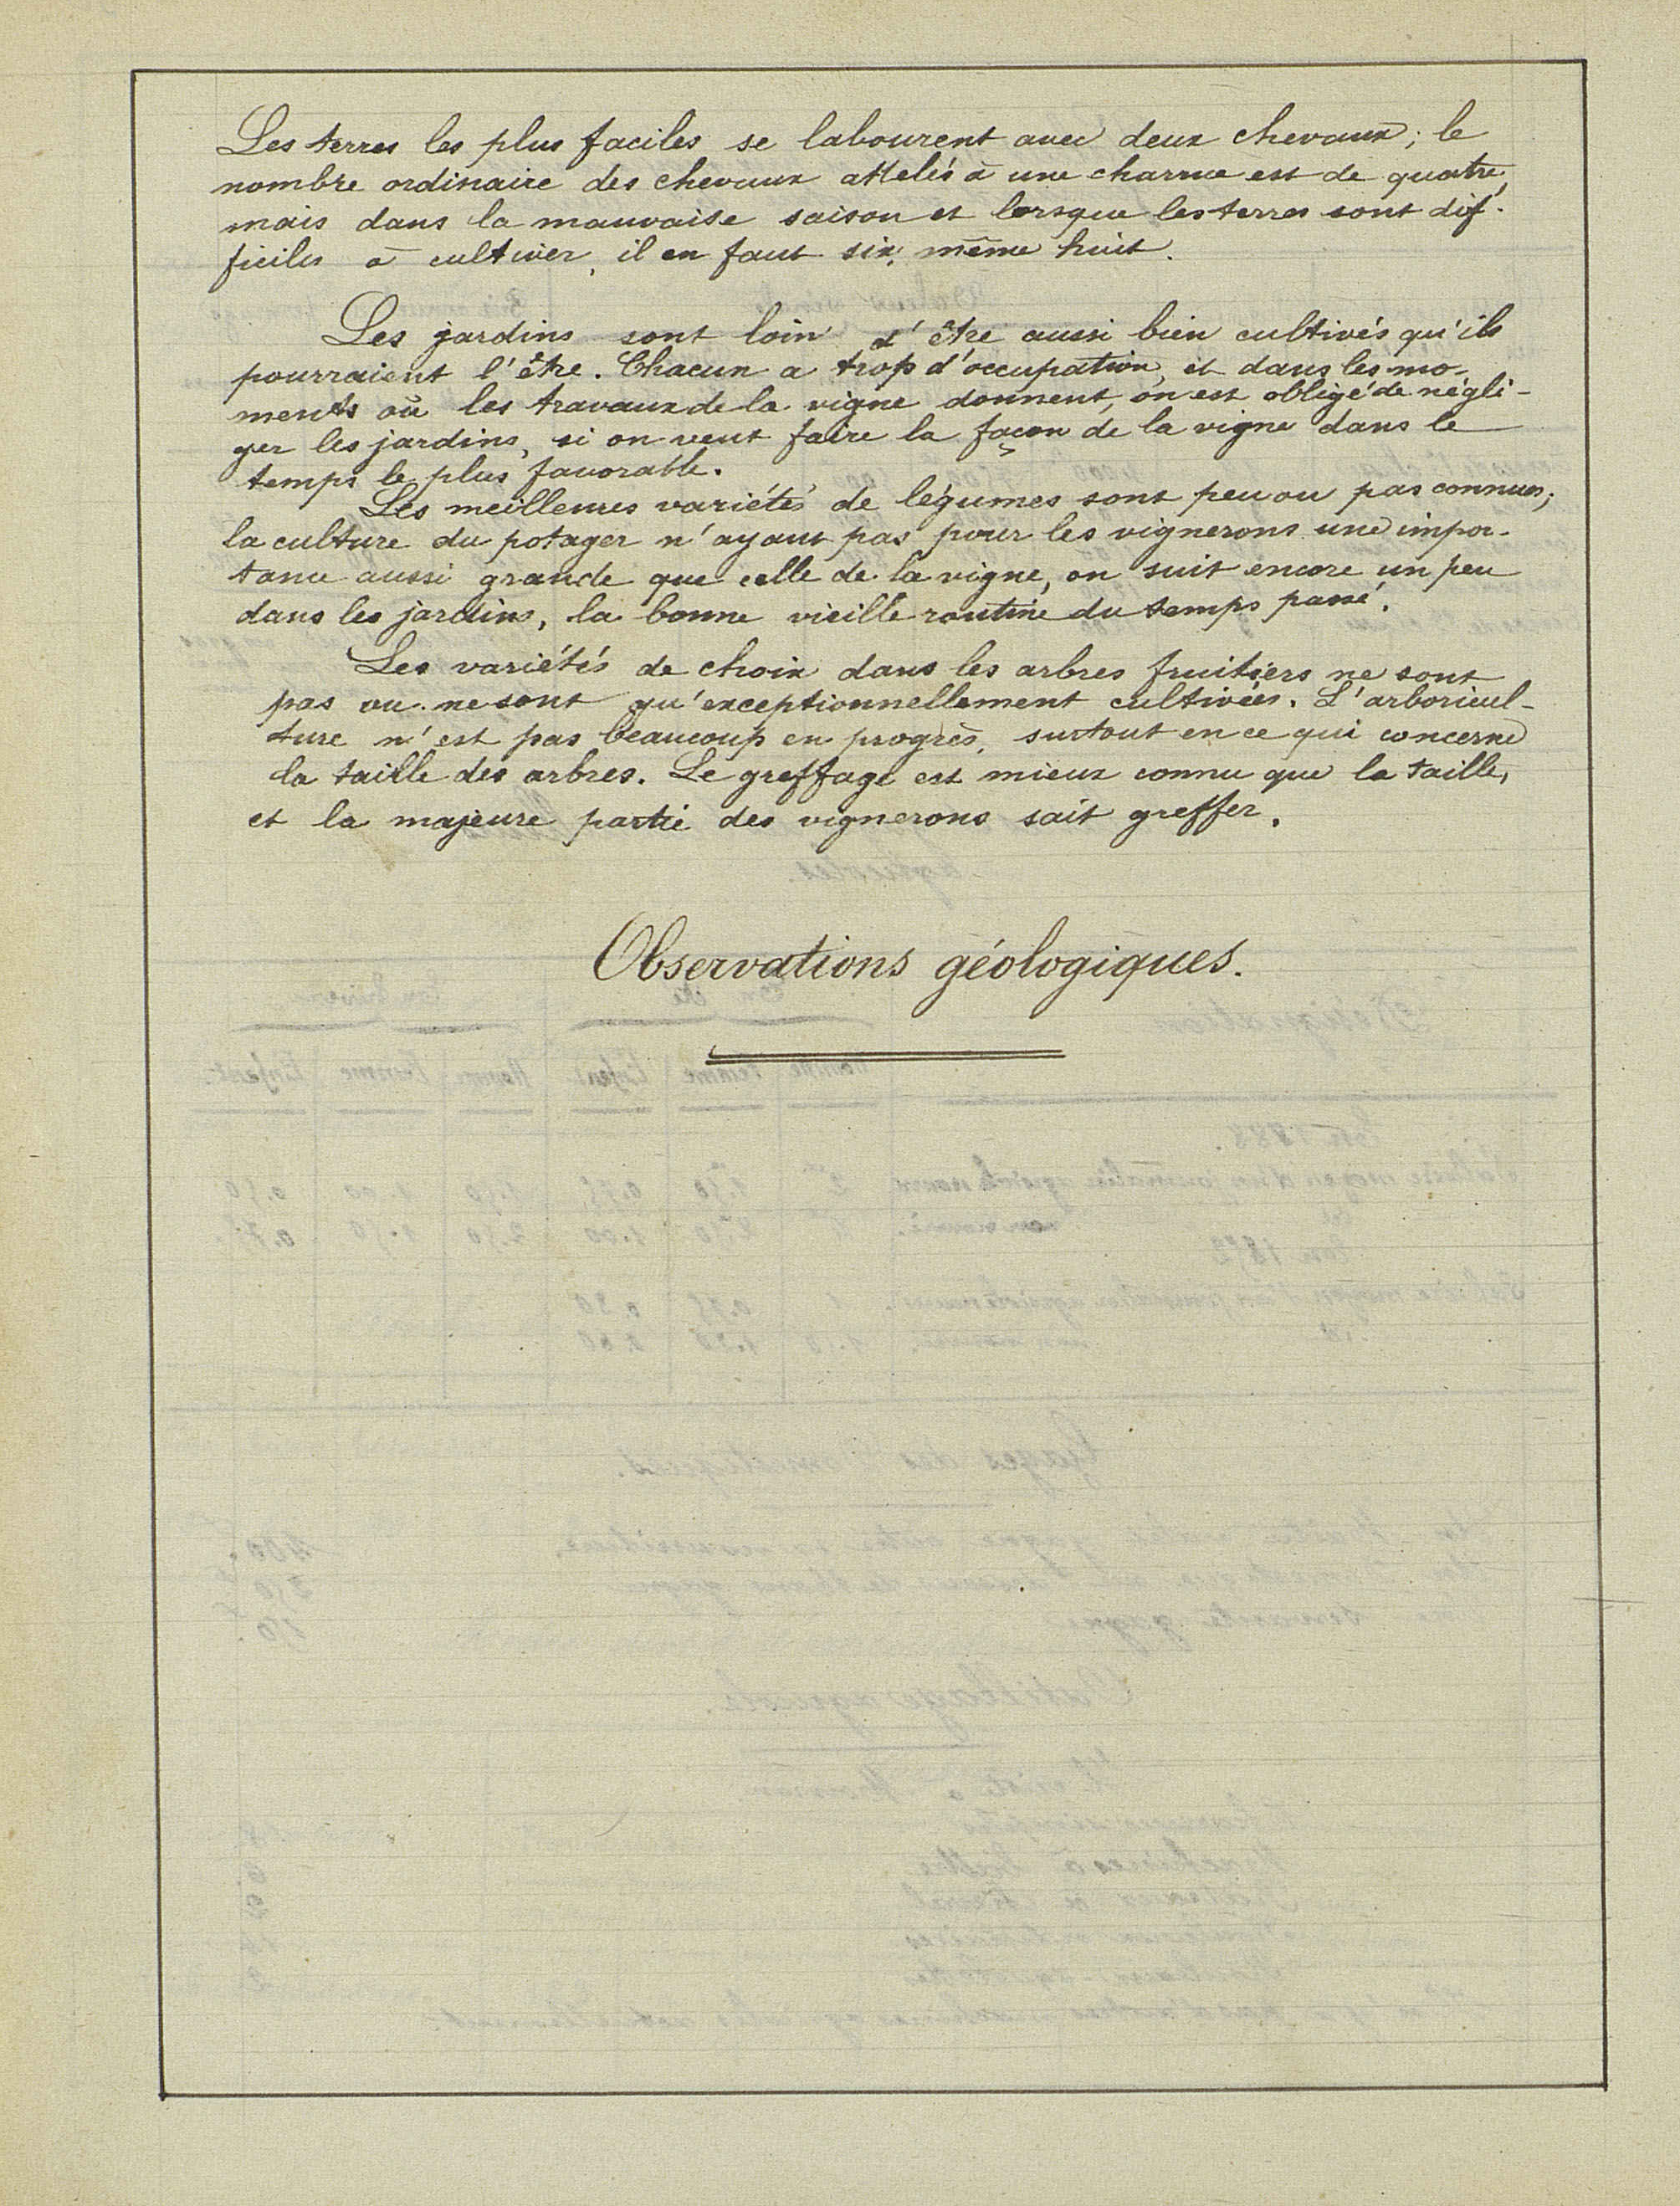 Les terres les plus faciles se labourent avec deux chevaux ; le
nombre ordinaire des chevaux attelés à une charrue est de quatre,
mais dans la mauvaise saison et lorsque les terres sont dif-
ficiles à cultiver, il en faut six, même huit.
Les jardins sont loin d'être aussi bien cultivés qu'ils
pourraient l'être. Chacun a trop d'occupation, et dans les mo-
ments où les travaux de la vigne donnent, on est obligé de négli-
ger les jardins, si on veut faire la façon de la vigne dans le
temps le plus favorable.
Les meilleures variétés de légumes sont peu ou pas connues ;
la culture du potager n'ayant pas pour les vignerons une impor-
tance aussi grande que celle de la vigne, on suit encore un peu
dans les jardins, la bonne vieille routine du temps passé.
Les variétés de choix dans les arbres fruitiers ne sont
pas ou ne sont qu'exceptionnellement cultivées. L'arboricul-
ture n'est pas beaucoup en progrès, surtout en ce qui concerne
la taille des arbres. Le greffage est mieux connu que la taille,
et la majeure partie des vignerons sait greffer.
Observations géologiques.